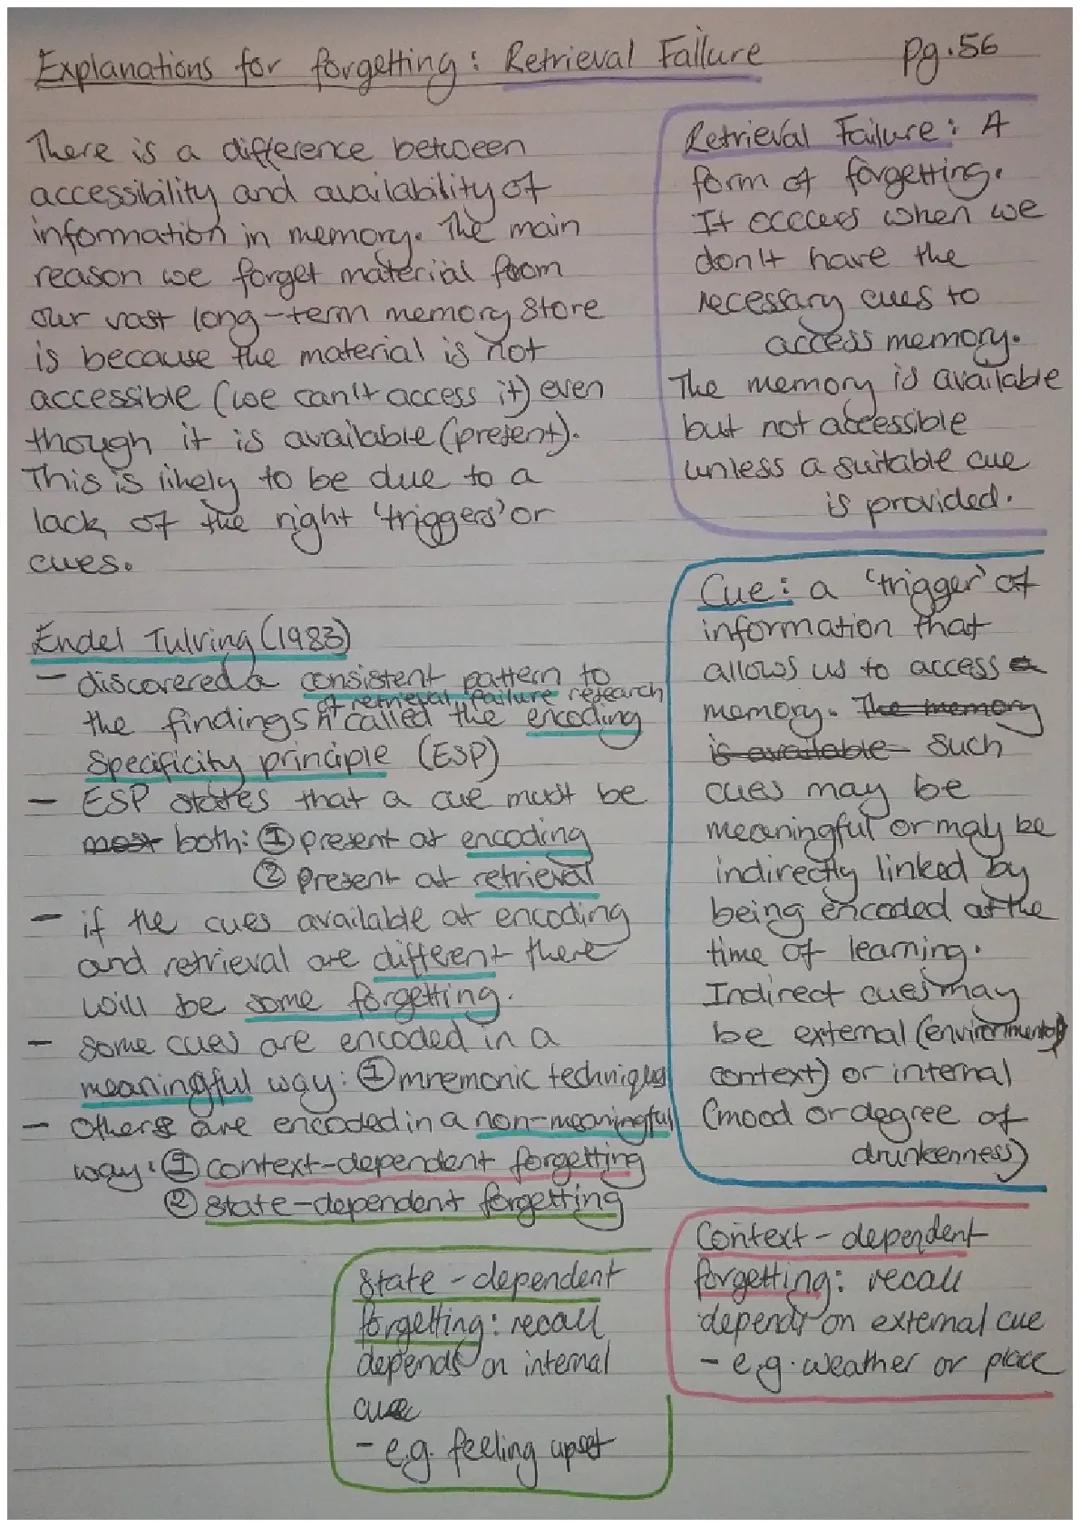 Explanations for forgetting: Retrieval Failure pg.56
There is a difference between
accessibility and availability of
information in memory. The main
reason we forget material from
our vast long-term memory store
is because the material is not
accessible (we can't access it) even
though it is available (present).
This is likely to be due to a
lack of the right 'triggers' or
cues.
Retrieval Failure: A
form of forgetting.
It occurs when we
don't have the
necessary cues to
access memory.
The memory is available
but not accessible
unless a suitable cue
is provided.
Endel Tulving (1983)
- discovered a consistent pattern to
of retrieval failure research
the findings ^ called the encoding
Specificity principle (ESP)
- ESP states that a cue must be
most both: ① present at encoding
② present at retrieval
- if the cues available at encoding
and retrieval are different there
will be some forgetting.
- some cues are encoded in a
meaningful way: ① mnemonic techniques
- Others are encoded in a non-meaningful
way: ① context-dependent forgetting
② state-dependent forgetting
Cue: a 'trigger' of
information that
allows us to access
memory. The memory
is available Such
cues may be
meaningful or may be
indirectly linked by
being encoded at the
time of learning.
Indirect cues may
be external (environmental
context) or internal
(mood or degree of
drunkenness)
State-dependent
forgetting: recall
depends on internal
cue
- e.g. feeling upset
Context-dependent
forgetting: recall
depends on external cue
- e.g. weather or place